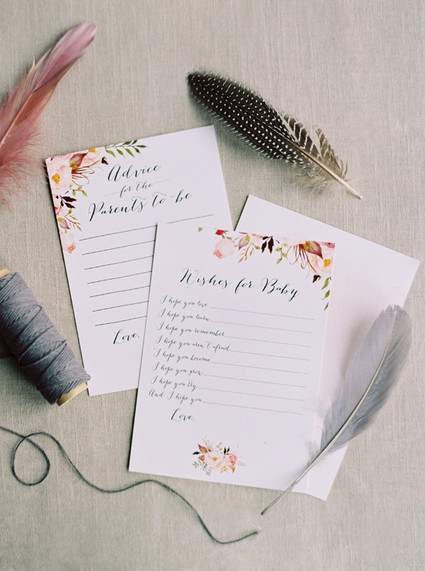 Advice
for the
Parents to be
Love,
Wishes for Baby
I hope you love
I hope you learn
I hope you remember
I hope you aren't afraid
I hope you become
I hope you
I hope you try
And I hope you
Love,